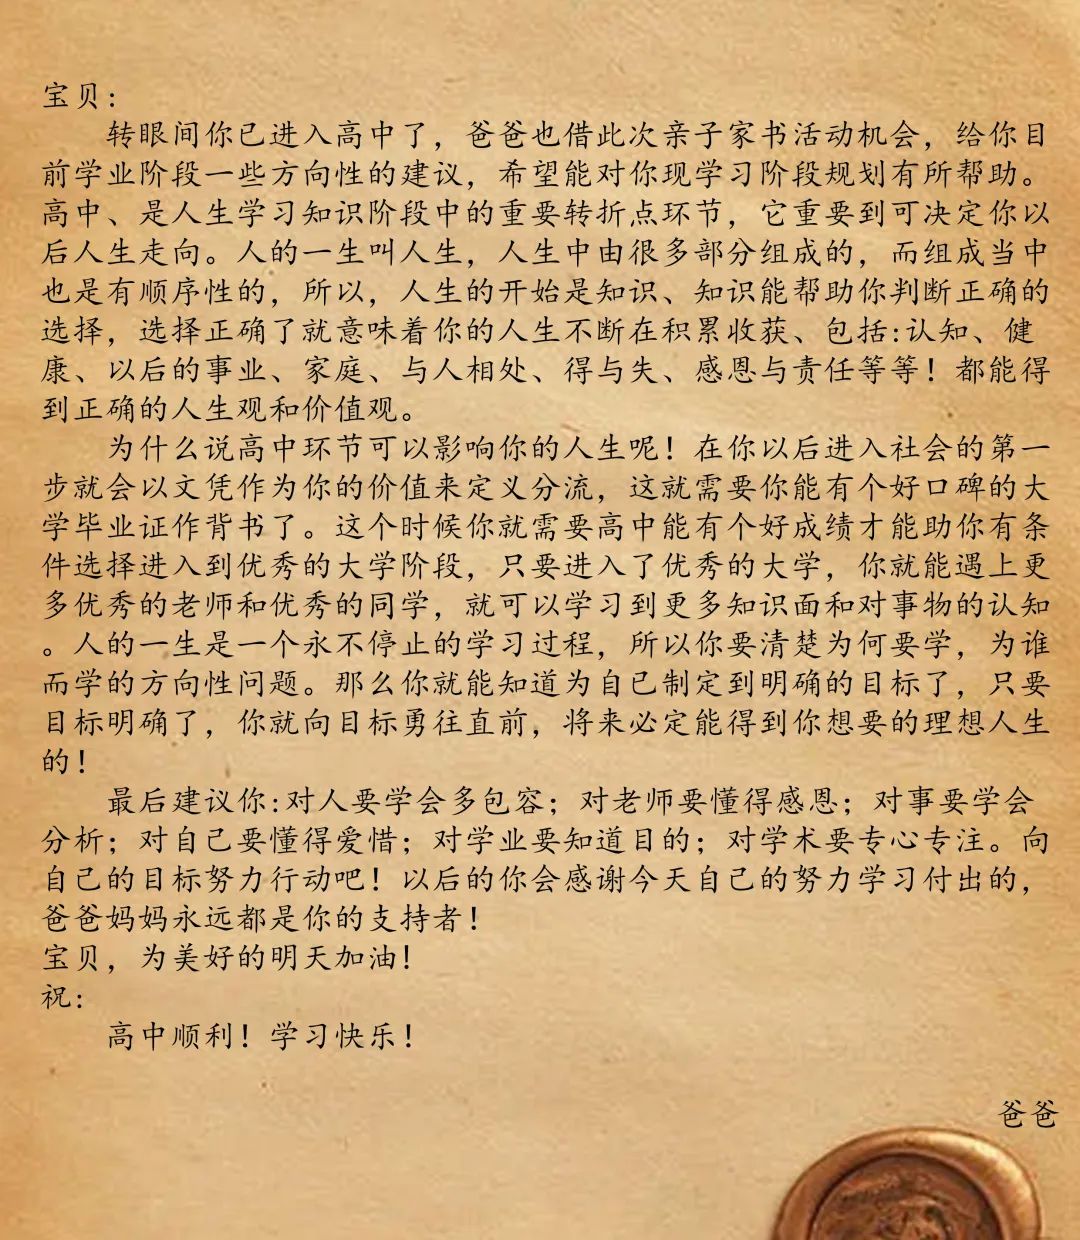 宝贝：
转眼间你已进入高中了，爸爸也借此次亲子家书活动机会，给你目
前学业阶段一些方向性的建议，希望能对你现学习阶段规划有所帮助。
高中、是人生学习知识阶段中的重要转折点环节，它重要到可决定你以
后人生走向。人的一生叫人生，人生中由很多部分组成的，而组成当中
也是有顺序性的，所以，人生的开始是知识、知识能帮助你判断正确的
选择，选择正确了就意味着你的人生不断在积累收获、包括:认知、健
康、以后的事业、家庭、与人相处、得与失、感恩与责任等等！都能得
到正确的人生观和价值观。
为什么说高中环节可以影响你的人生呢！在你以后进入社会的第一
步就会以文凭作为你的价值来定义分流，这就需要你能有个好口碑的大
学毕业证作背书了。这个时候你就需要高中能有个好成绩才能助你有条
件选择进入到优秀的大学阶段，只要进入了优秀的大学，你就能遇上更
多优秀的老师和优秀的同学，就可以学习到更多知识面和对事物的认知
。人的一生是一个永不停止的学习过程，所以你要清楚为何要学，为谁
而学的方向性问题。那么你就能知道为自己制定到明确的目标了，只要
目标明确了，你就向目标勇往直前，将来必定能得到你想要的理想人生
的！
最后建议你:对人要学会多包容；对老师要懂得感恩；对事要学会
分析；对自己要懂得爱惜；对学业要知道目的；对学术要专心专注。向
自己的目标努力行动吧！以后的你会感谢今天自己的努力学习付出的，
爸爸妈妈永远都是你的支持者！
宝贝，为美好的明天加油！
祝：
高中顺利！学习快乐！
爸爸